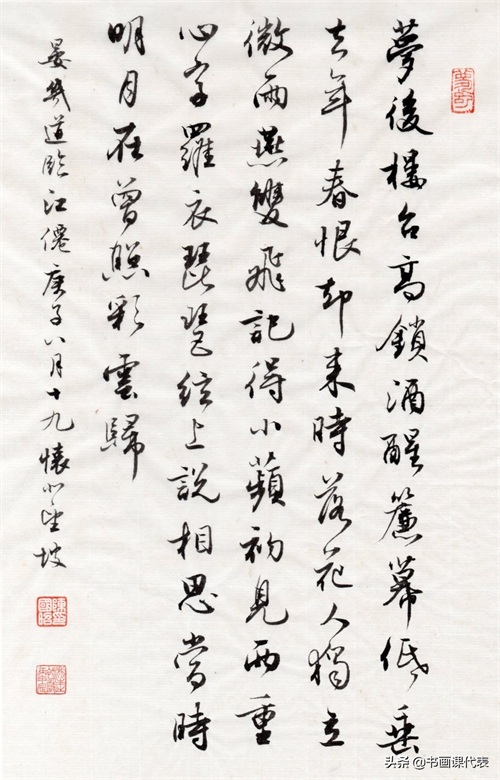 夢後樓台高鎖酒醒簾幕低垂
去年春恨却来時落花人獨立
微雨燕雙飛記得小蘋初見兩重
心字羅衣琵琶絃上說相思當時
明月在曾照彩雲歸
晏幾道臨江僊庚子八月十九懷坡
头条 @书画课代表